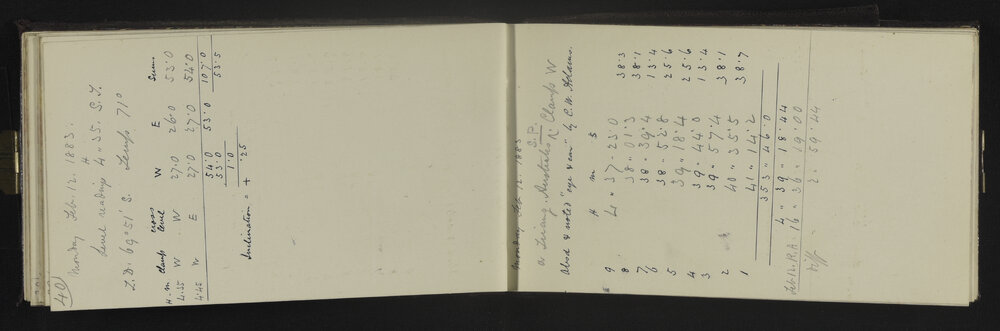 40
Monday Feb. 12. 1883.
Level readings 4 H 35. S.T.
Z.D. 69° 51' S. Temp 71°
H. m. Clamp cross level W E Sums
4.35 W W 27.0 26.0 53.0
4.45 W E 27.0 27.0 54.0
54.0 53.0 107.0
53.0 53.5
1.0
Inclination = + .25
Monday Feb. 12. 1883
S.P.
α Triang. Australis Clamp W
Obsd & noted "eye & ear" by C.W. Adams.
H m S
9 4 " 37 " 23.0 38.3
8 38 " 01.3 38.1
7 38 " 39.4 13.4
6 38 " 52.8 25.6
5 39 " 18.4 25.6
4 39 " 44.0 13.4
3 39 " 57.4 38.1
2 40 " 35.5 38.7
1 41 " 14.2
353 " 46.0
4 " 39 " 18.44
Feb. 12. R.A. 16 " 36 " 19.00
Diff = 2 " 59.44